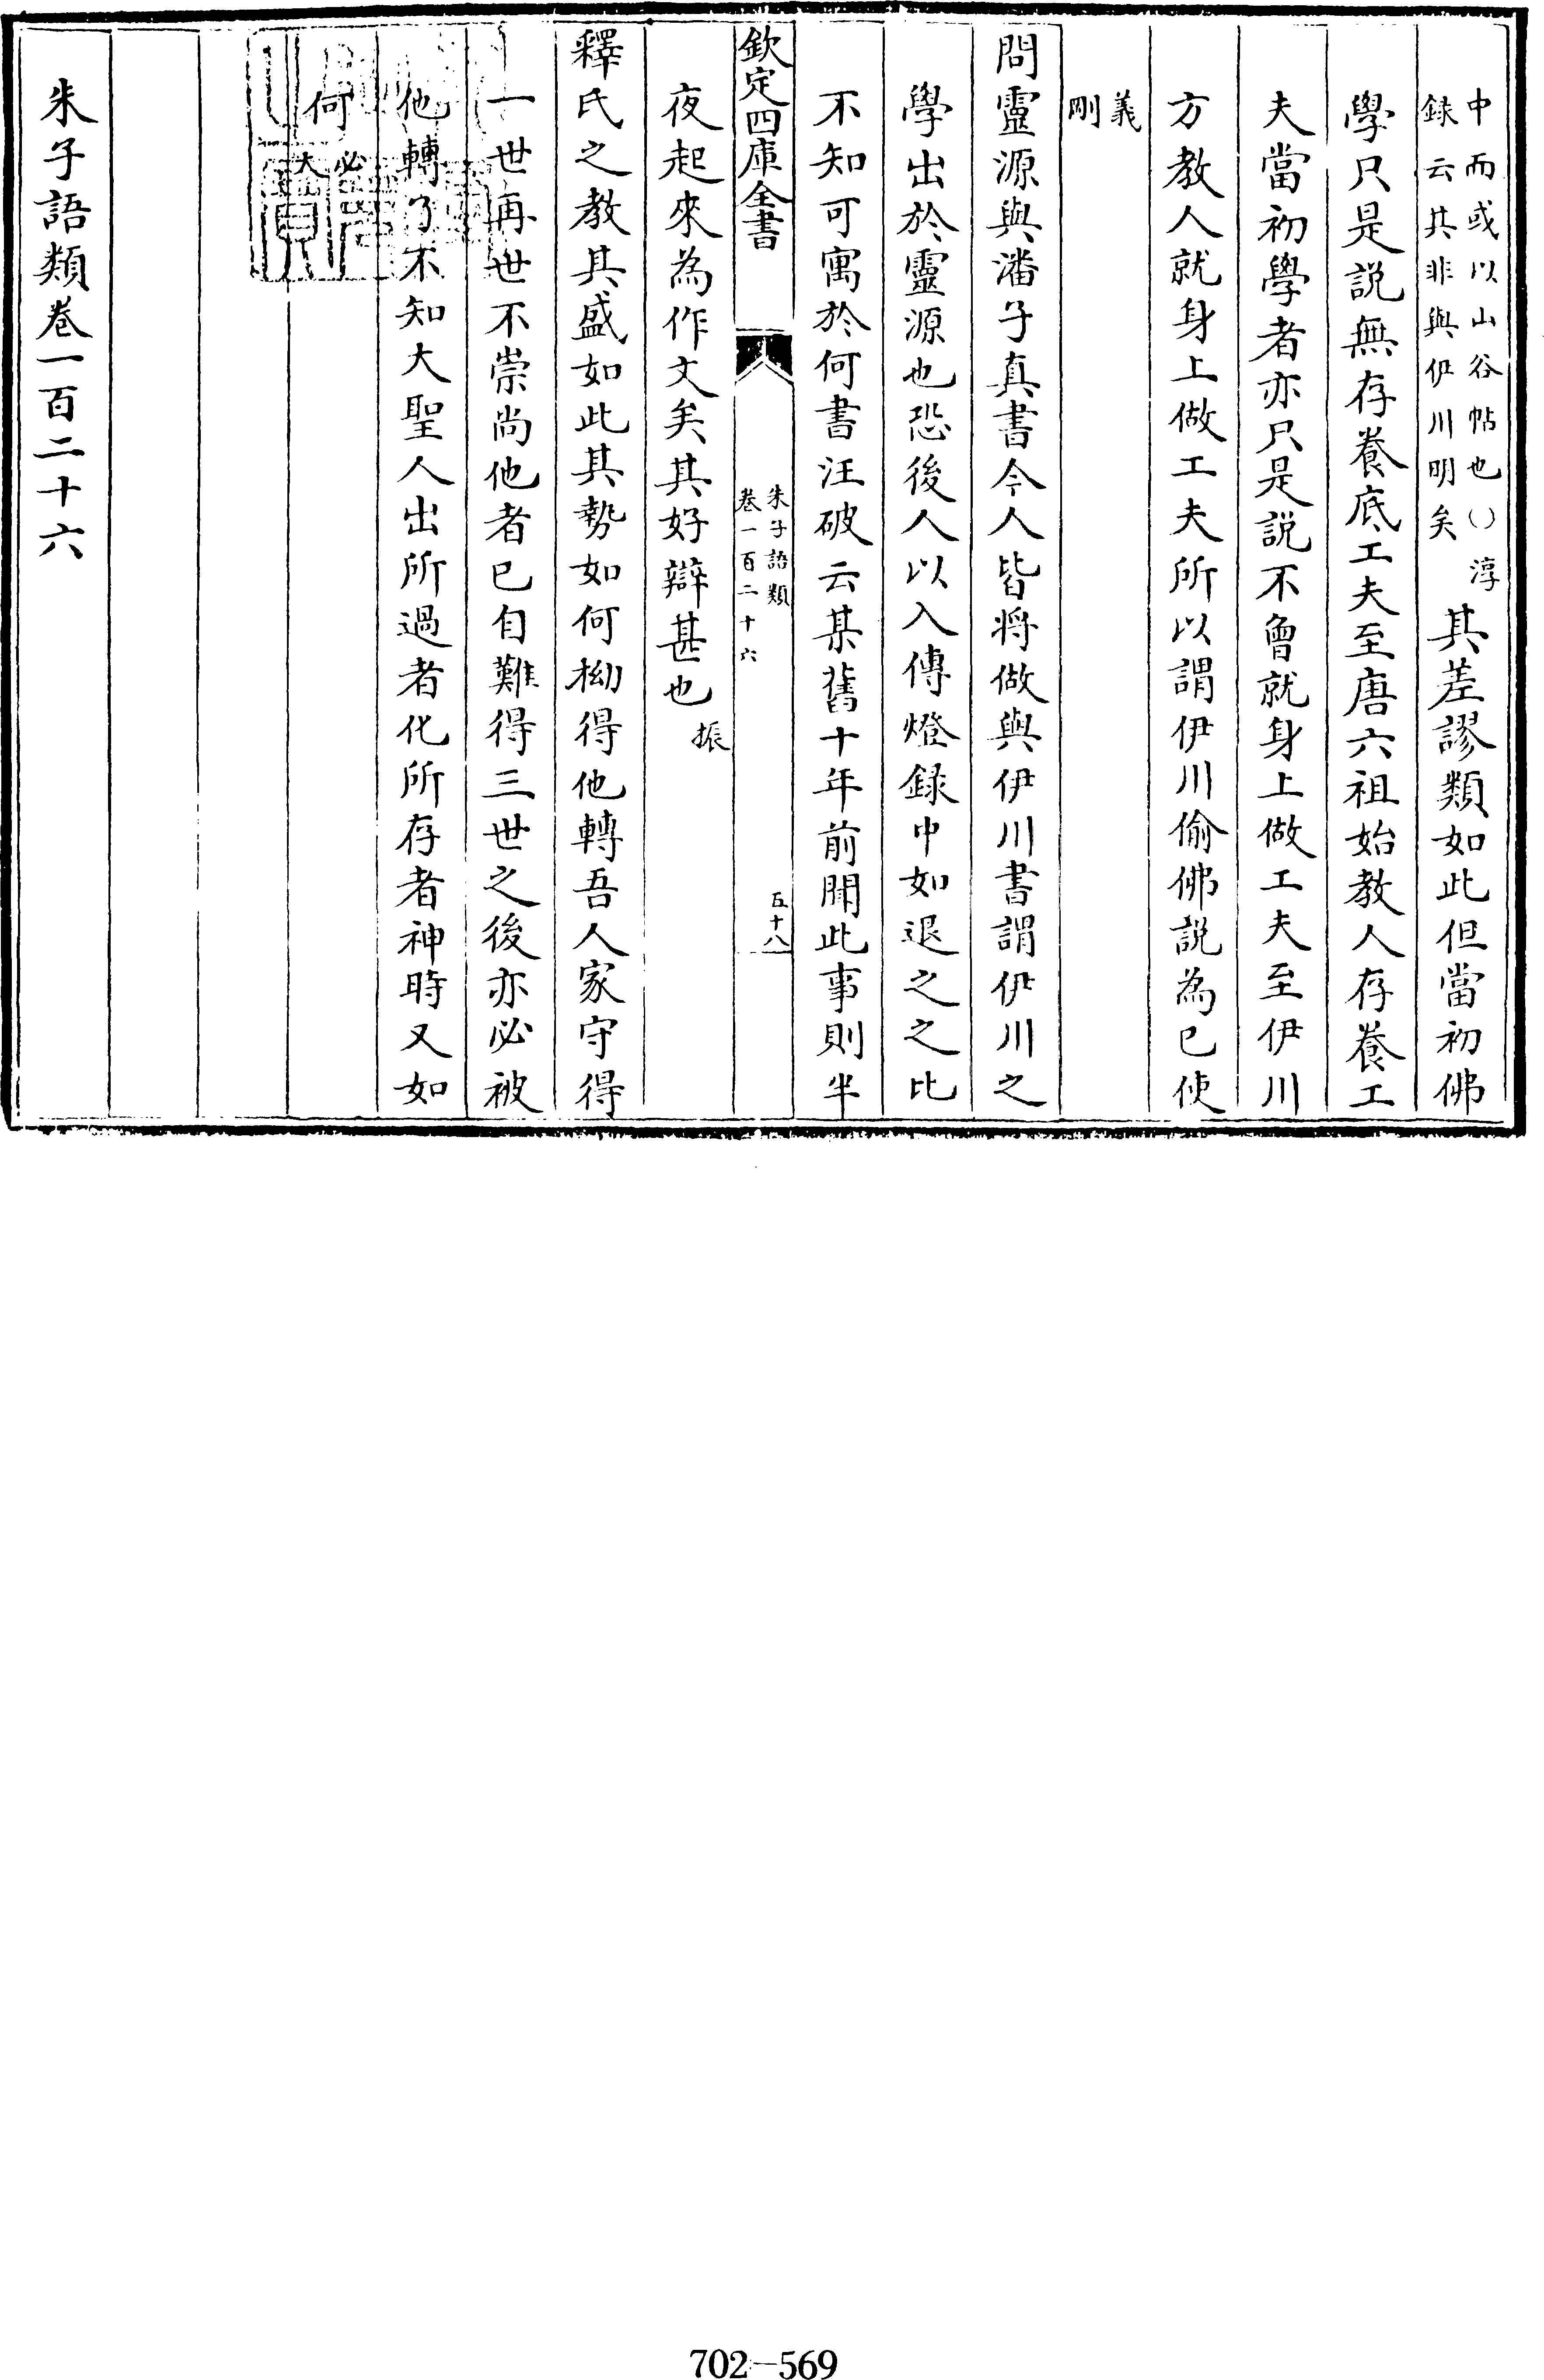 中而或以山谷帖也〇淳
録云其非與伊川明矣
其差謬類如此但當初佛
學只是説無存養底工夫至唐六祖始教人存養工
夫當初學者亦只是説不會就身上做工夫至伊川
方教人就身上做工夫所以謂伊川偷佛説為已使
義
剛
問靈源與潘子真書今人皆將做與伊川書謂伊川之
學出於靈源也恐後人以入傳燈録中如退之之比
不知可寓於何書汪破云某舊十年前聞此事則半
欽定四庫全書
朱子語類
卷一百二十六
五十八
夜起來為作文矣其好辯甚也振
釋氏之教其盛如此其勢如何拗得他轉吾人家守得
一世再世不崇尚他者已自難得三世之後亦必被
他轉了不知大聖人出所過者化所存者神時又如
何必
大
朱子語類卷一百二十六
702—569